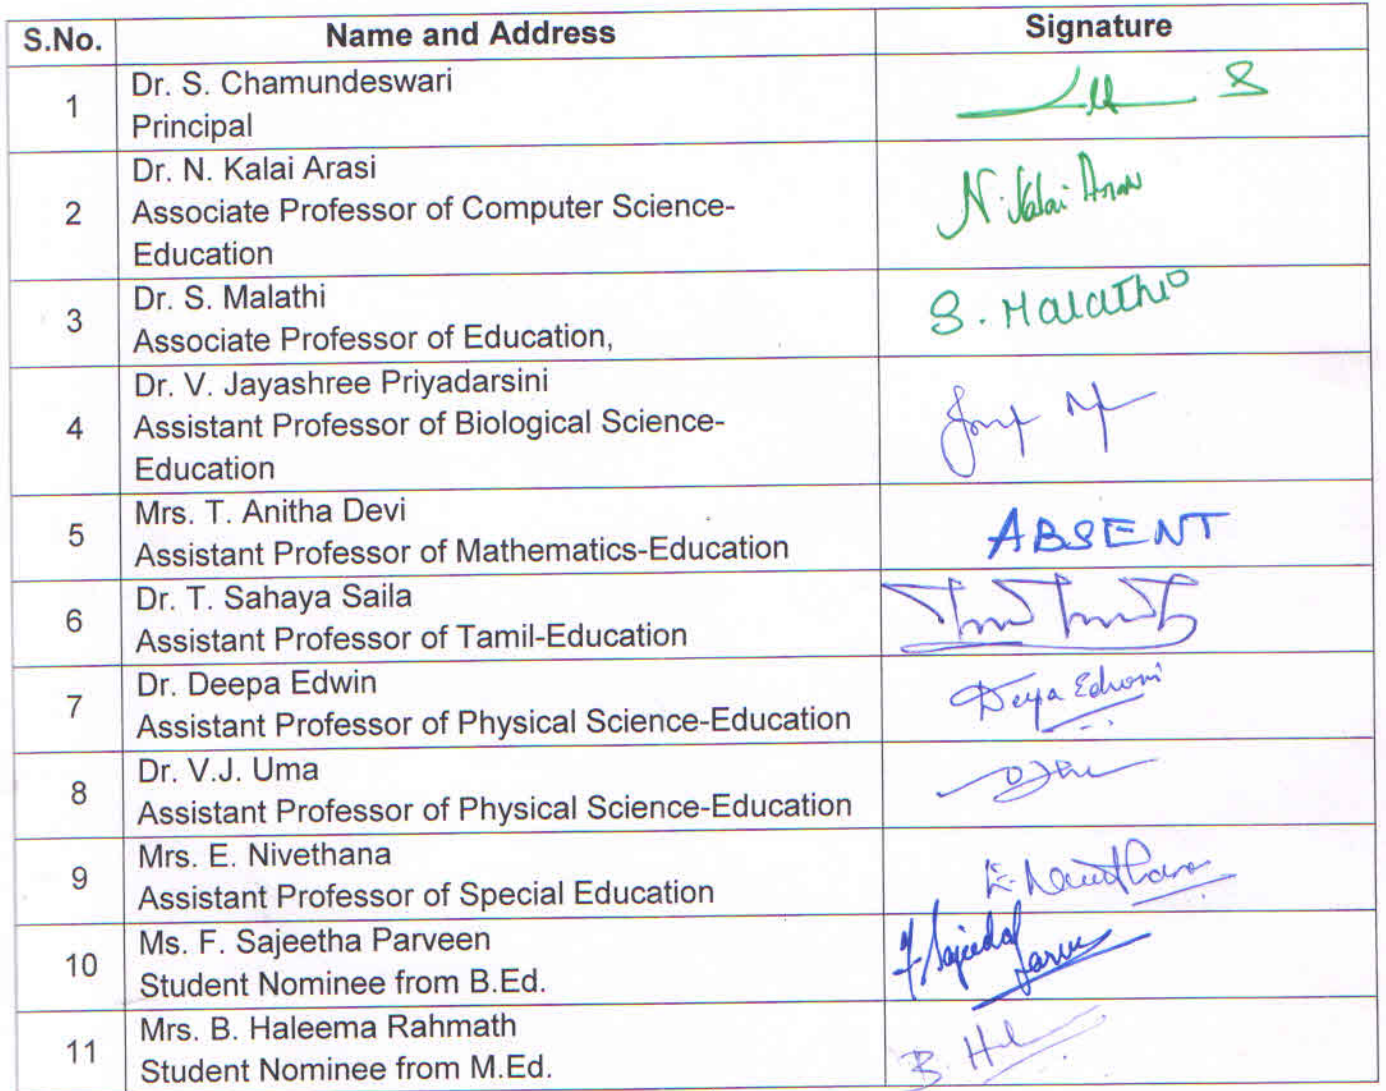 S.No. Name and Address Signature
1 Dr. S. Chamundeswari
Principal
2 Dr. N. Kalai Arasi N. Kalai Arasi
Associate Professor of Computer Science-
Education
3 Dr. S. Malathi S. Malathi
Associate Professor of Education,
4 Dr. V. Jayashree Priyadarsini
Assistant Professor of Biological Science-
Education
5 Mrs. T. Anitha Devi ABSENT
Assistant Professor of Mathematics-Education
6 Dr. T. Sahaya Saila
Assistant Professor of Tamil-Education
7 Dr. Deepa Edwin Deepa Edwin
Assistant Professor of Physical Science-Education
8 Dr. V.J. Uma
Assistant Professor of Physical Science-Education
9 Mrs. E. Nivethana E. Nivethana
Assistant Professor of Special Education
10 Ms. F. Sajeetha Parveen
Student Nominee from B.Ed.
11 Mrs. B. Haleema Rahmath
Student Nominee from M.Ed.